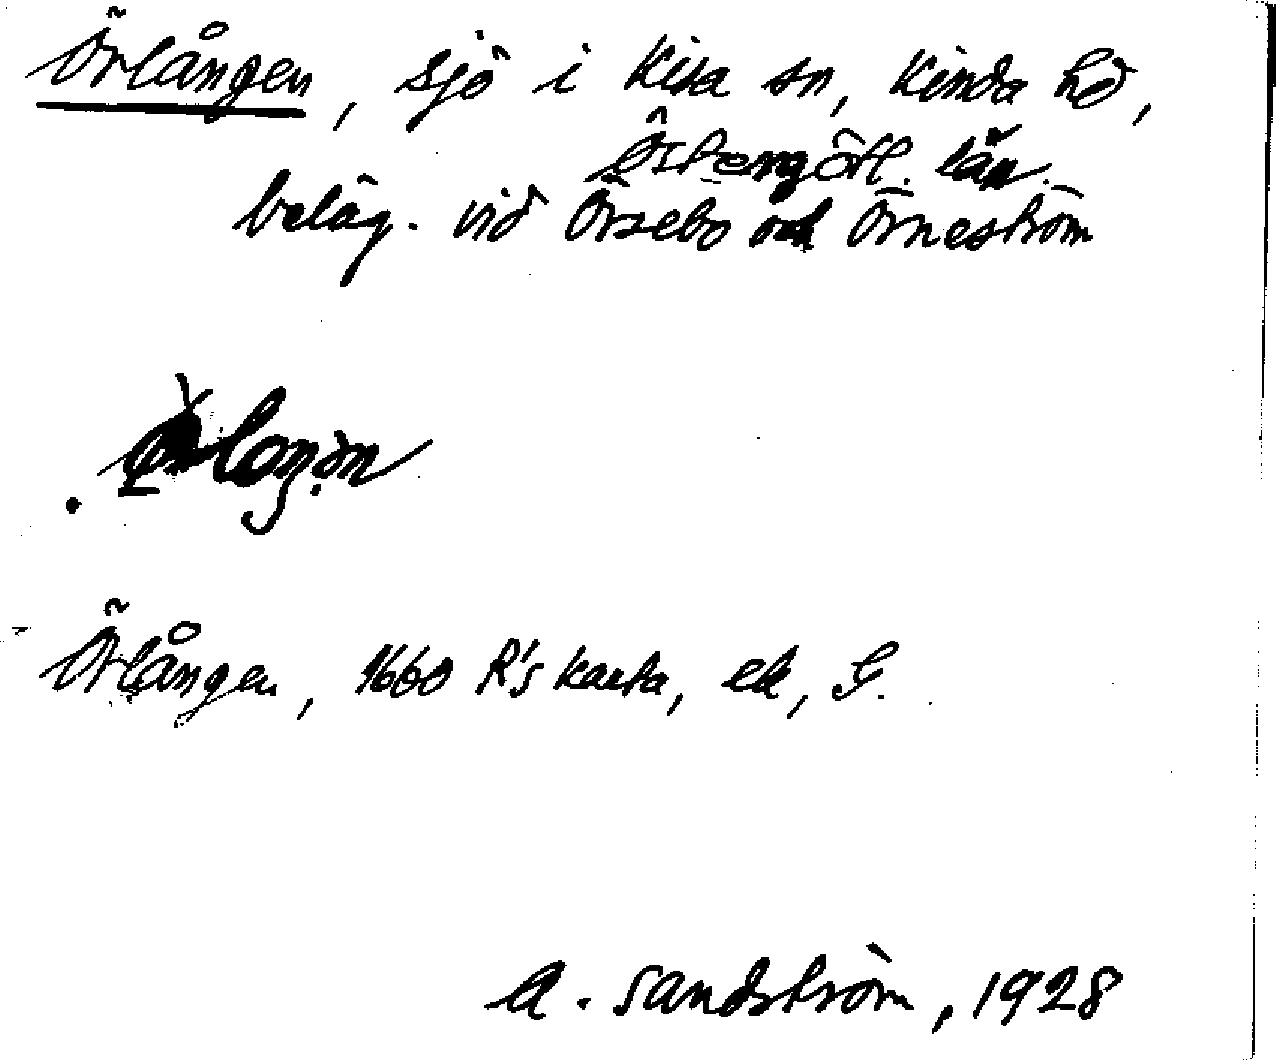 Örlången, sjö i Kisa sn, Kinda hd,
Östergötl. län.
beläg. vid Örsebo och Örneström
Örlången, 1660 R's karta, ek, G.
A. Sandström, 1928